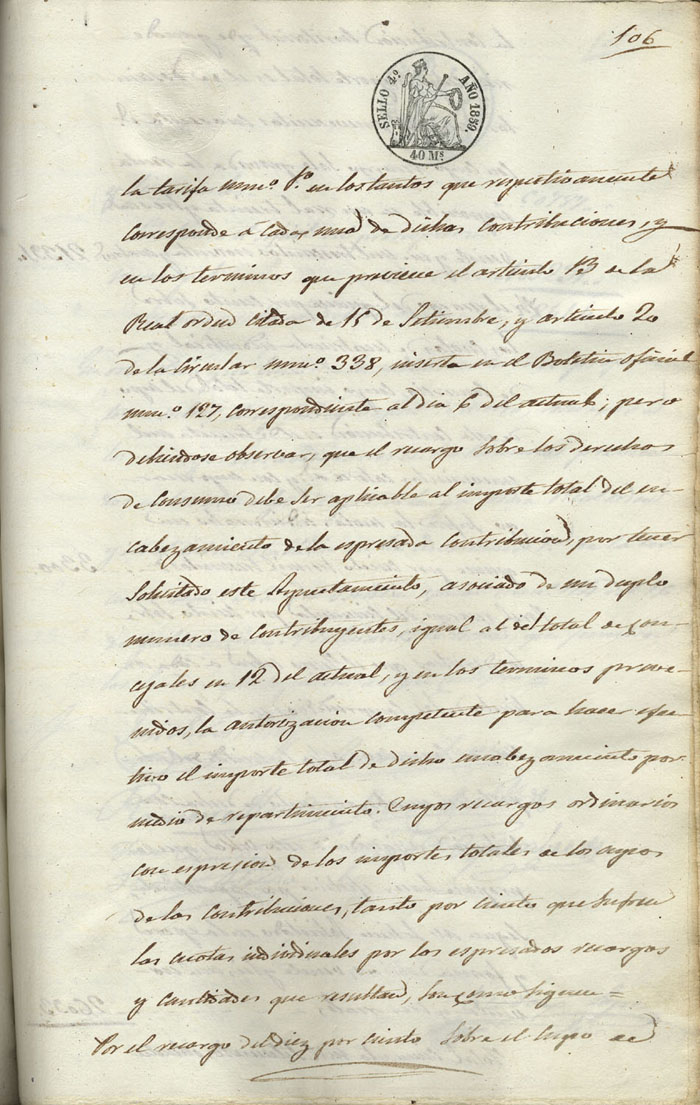 106
SELLO 4º AÑO 1859.
40 Ms
la tarifa num.º 1.º en los tantos que respectivamente
corresponde á cada una de dichas contribuciones, y
en los terminos que previene el articulo 13 de la
Real orden citada de 15 de Setiembre, y articulo 20
de la Circular num.º 338, inserta en el Boletin oficial
num.º 127, correspondiente al dia 6 del actual; pero
debiendose observar, que el recargo sobre los derechos
de Consumo debe ser aplicable al importe total del en-
cabezamiento de la espresada contribucion, por tener
Solicitado este Ayuntamiento, asociado de un duplo
numero de Contribuyentes, igual al del total de con-
cejales en 12 del actual, y en los terminos preve-
nidos, la autorizacion competente para hacer efec-
tivo el importe total de dicho encabezamiento por
medio de repartimiento. Cuyos recargos ordinarios
con espresion de los importes totales de los cupos
de las Contribuciones, tanto por ciento que sufren
las cuotas individuales por los espresados recargos
y cantidades que resultan, son como siguen=
Por el recargo del diez por ciento sobre el cupo de